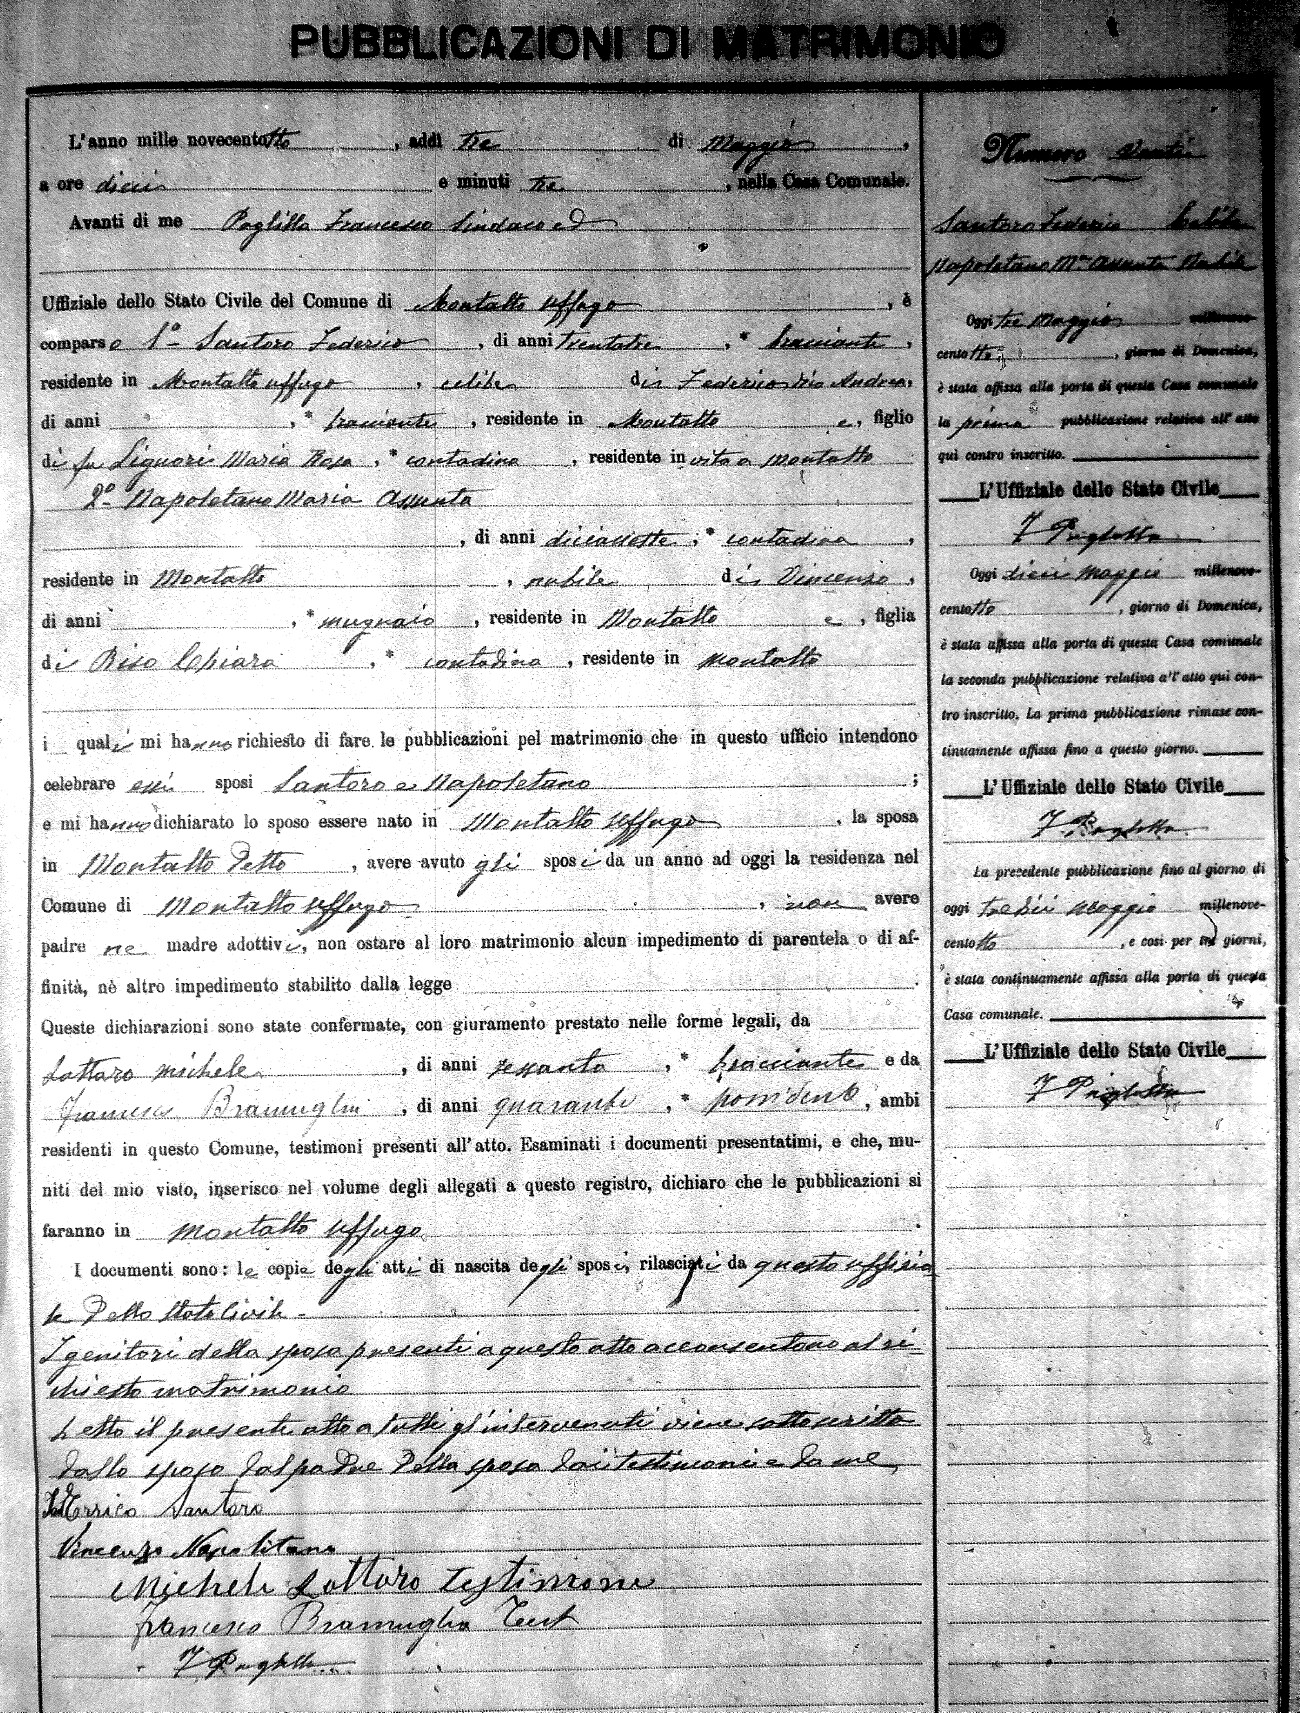 PUBBLICAZIONI DI MATRIMONIO
L'anno mille novecentotto, addì tre di Maggio,
a ore dieci e minuti tre, nella Casa Comunale.
Avanti di me Francesco Sindaco ed
Uffiziale dello Stato Civile del Comune di Montalto Uffugo, è
comparso 1º- Santoro Federico, di anni trentatre, * bracciante,
residente in Montalto Uffugo, celibe di Federico Andrea,
di anni , * bracciante, residente in Montalto e, figlio
di fu Liguori Maria Rosa, * contadina, residente in vita a Montalto
2º- Napoletano Maria Assunta
, di anni diciassette, * contadina,
residente in Montalto, nubile di Vincenzo,
di anni , * mugnaio, residente in Montalto e, figlia
di Riso Chiara, * contadina, residente in Montalto
i quali mi hanno richiesto di fare le pubblicazioni pel matrimonio che in questo ufficio intendono
celebrare essi sposi Santoro e Napoletano ;
e mi hanno dichiarato lo sposo essere nato in Montalto Uffugo, la sposa
in Montalto detto, avere avuto gli sposi da un anno ad oggi la residenza nel
Comune di Montalto Uffugo, non avere
padre ne madre adottivi, non ostare al loro matrimonio alcun impedimento di parentela o di af-
finità, nè altro impedimento stabilito dalla legge .
Queste dichiarazioni sono state confermate, con giuramento prestato nelle forme legali, da
Lattaro Michele, di anni sessanta, * bracciante e da
Francesco Bramuglia, di anni quaranta, * possidente, ambi
residenti in questo Comune, testimoni presenti all'atto. Esaminati i documenti presentatimi, e che, mu-
niti del mio visto, inserisco nel volume degli allegati a questo registro, dichiaro che le pubblicazioni si
faranno in Montalto Uffugo.
I documenti sono: le copie degli atti di nascita degli sposi, rilasciati da questo uffizia
le dello Stato Civile -
I genitori della sposa presenti a questo atto acconsentono al ri-
chiesto matrimonio
Letto il presente atto a tutti gl'intervenuti viene sottoscritto
dallo sposo dal padre della sposa dai testimoni e da me
Errico Santoro
Vincenzo Napolitano
Michele Lattaro testimone
Francesco Bramuglia Test
Numero Venti
Santoro Federico Celibe
Napoletano Mª Assunta Nubile
Oggi tre Maggio millenove-
centotto, giorno di Domenica,
è stata affissa alla porta di questa Casa comunale
la prima pubblicazione relativa all'atto
qui contro inscritto.
L'Uffiziale dello Stato Civile
Oggi dieci Maggio millenove-
centotto, giorno di Domenica,
è stata affissa alla porta di questa Casa comunale
la seconda pubblicazione relativa all'atto qui con-
tro inscritto. La prima pubblicazione rimase con-
tinuamente affissa fino a questo giorno.
L'Uffiziale dello Stato Civile
La precedente pubblicazione fino al giorno di
oggi tredici Maggio millenove-
centotto, e così per tre giorni,
è stata continuamente affissa alla porta di questa
Casa comunale.
L'Uffiziale dello Stato Civile